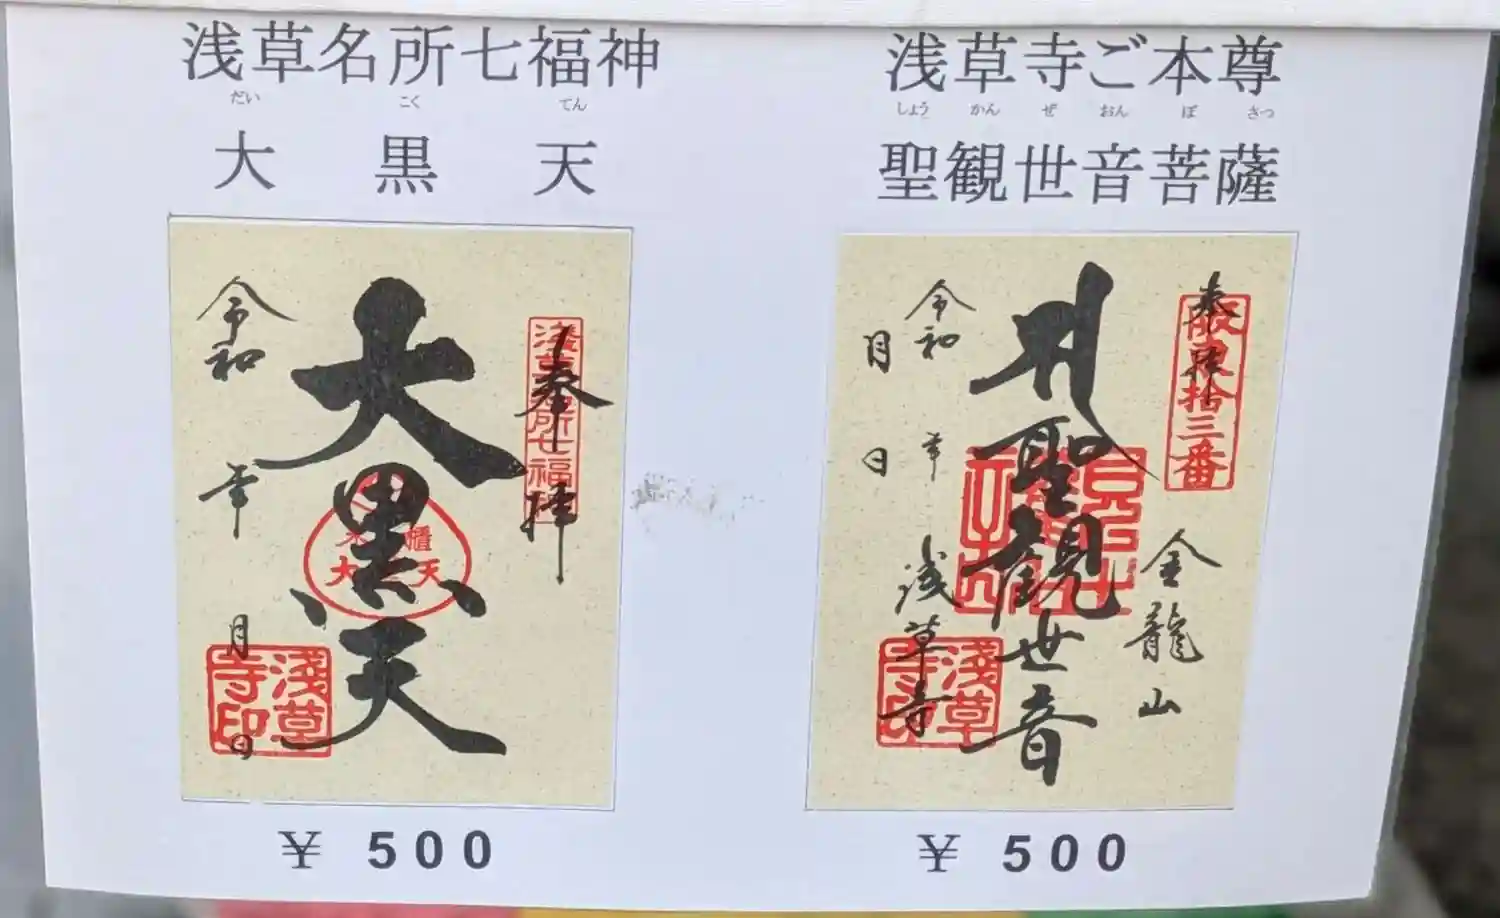 浅草名所七福神
だい こく てん
大黒天
奉拝
浅草名所七福神
大黒天
大 天
令和 年 月 日
浅草寺印
¥ 500
浅草寺ご本尊
しょう かん ぜ おん ぼ さつ
聖観世音菩薩
奉拝
坂東拾三番
金龍山
聖観世音
令和 年
月 日
浅草寺
浅草寺印
¥ 500